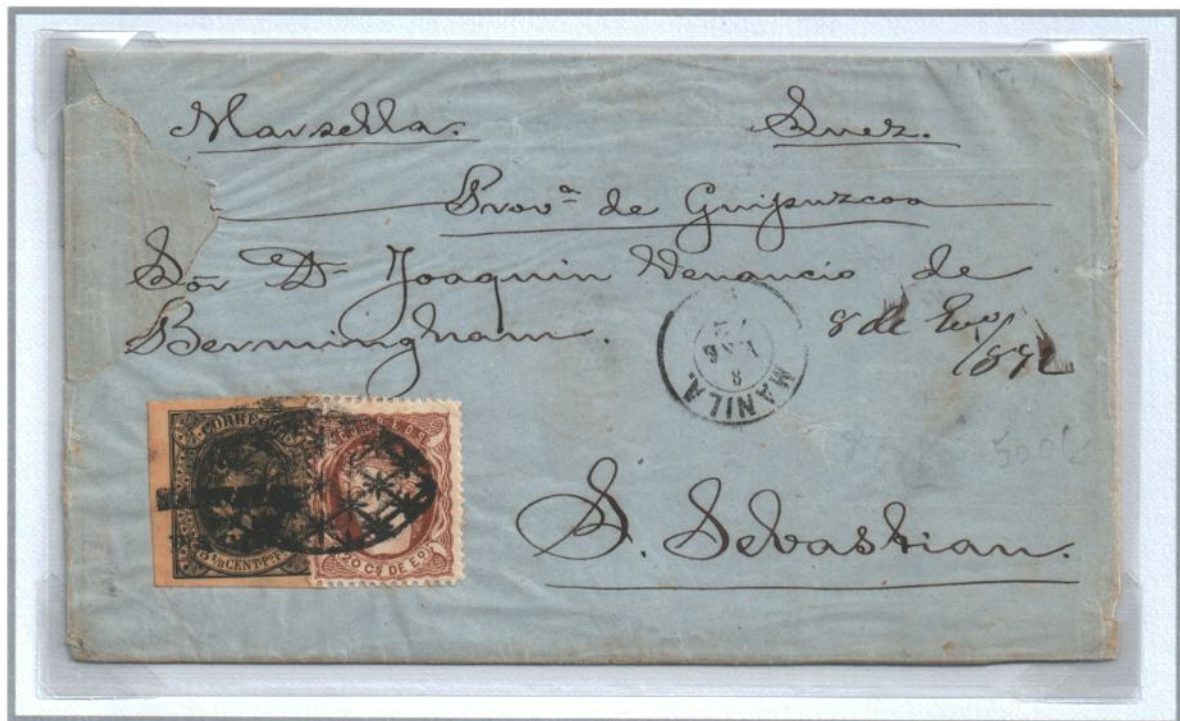 Marsella. Suez.
Provª de Guipuzcoa
Sor Dn Joaquin Venancio de
Bermingham.
8 de Eno/
1872
MANILA.
8
72
CORREOS
3 1/8 CENT. PO F
20 CS DE EO
S. Sebastian.